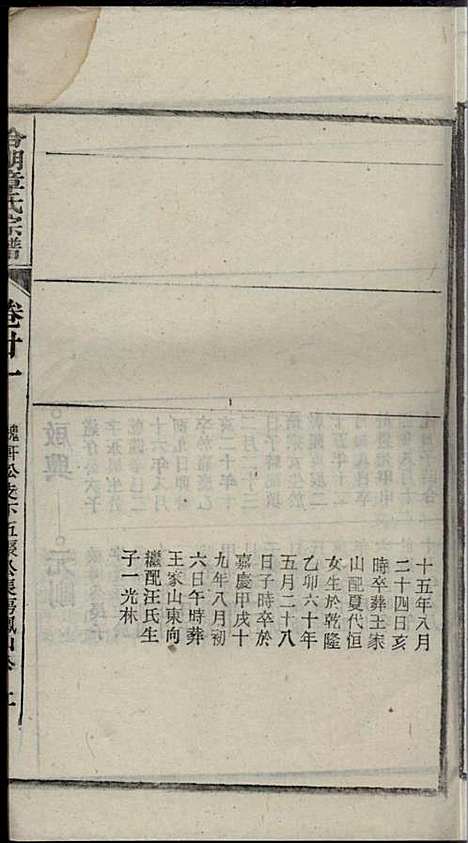 十五年八月
二十四日亥
時卒葬王家
山配夏代恒
女生於乾隆
乙卯六十年
五月二十八
日子時卒於
嘉慶甲戌十
九年八月初
六日午時葬
王家山東向
繼配汪氏生
子一光林
湖章氏宗譜
卷廿一